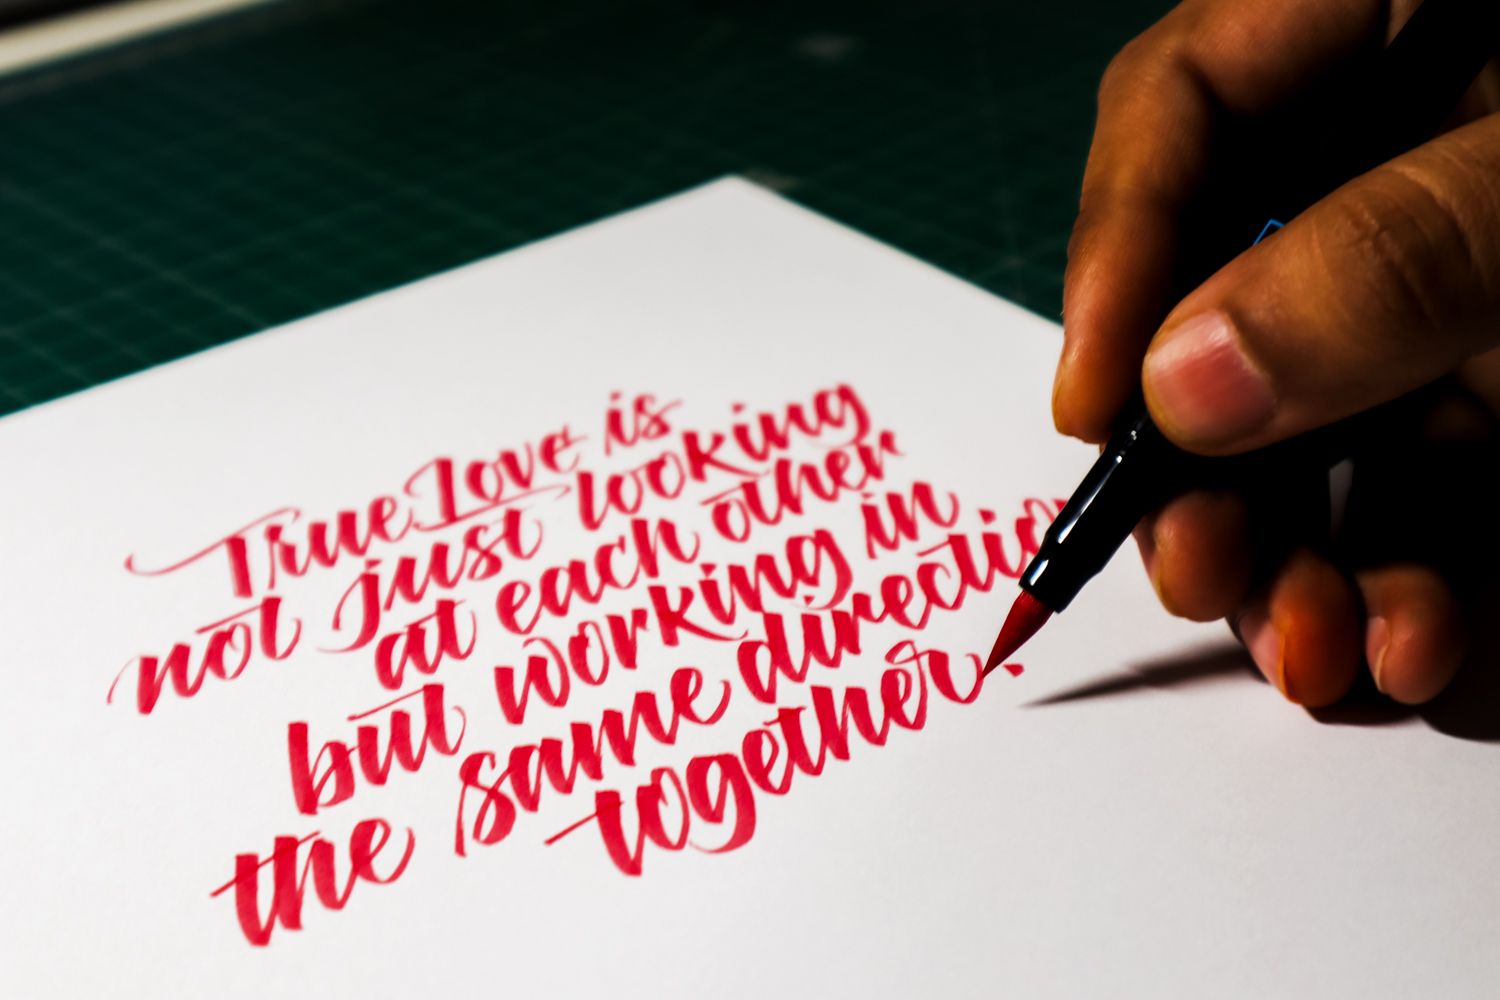 True Love is
not just looking
at each other
but working in
the same direction
together.